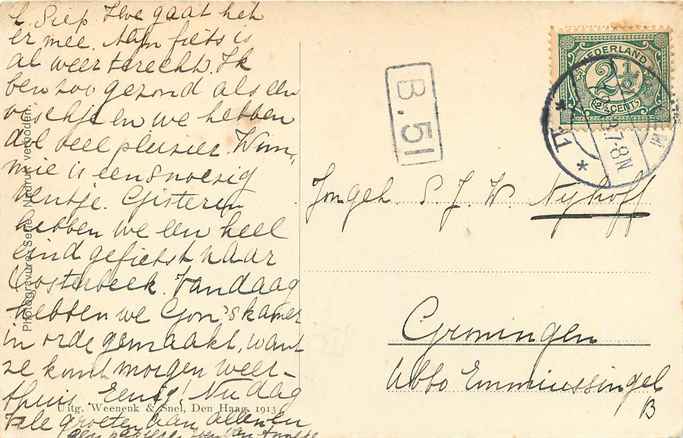 L. Siep. Hoe gaat het
er mee. Mijn fiets is
al weer terecht. Ik
ben zoo gezond als een
vischje en we hebben
dol veel pleizier. Wim,
mie is een snoezig
ventje. Gisteren
hebben we een heel
eind gefietst naar
Oosterbeek. Vandaag
hebben we Gon's kamer
in orde gemaakt, want
ze komt morgen weer
thuis. Eenig! Nu dag
Vele groeten van allen en
een van
Uitg. Weenenk & Snel, Den Haag 1913
Photogravure Serie verboden.
B. 51
NEDERLAND
2½
2½ CENT
7-8N
Jongeh. S. J. W. Nyhoff
Groningen
Ubbo Emmiussingel
B